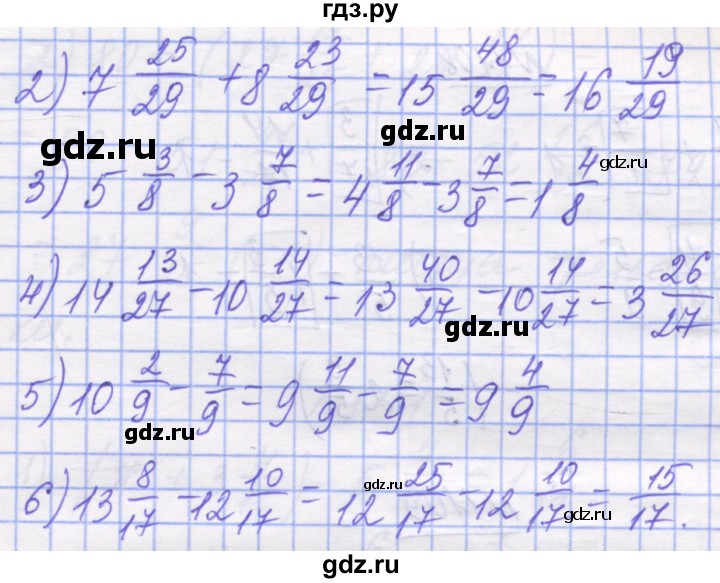 гдз.ру
2) 7 25/29 + 8 23/29 = 15 48/29 = 16 19/29
gdz.ru
gdz.ru
3) 5 3/8 - 3 7/8 = 4 11/8 - 3 7/8 = 1 4/8
gdz.ru
4) 14 13/27 - 10 14/27 = 13 40/27 - 10 14/27 = 3 26/27
gdz.ru
5) 10 2/9 - 7/9 = 9 11/9 - 7/9 = 9 4/9
gdz.ru
6) 13 8/17 - 12 10/17 = 12 25/17 - 12 10/17 = 15/17.
gdz.ru
gdz.ru
gdz.ru